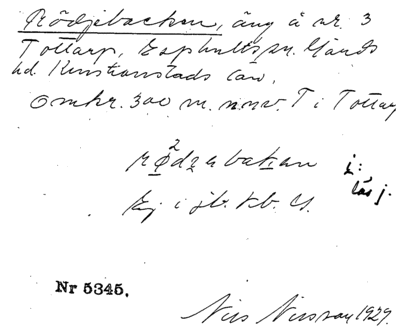 Rödjebacken, äng å nr. 3
Tottarp, Esphults sn. Gärds
hd. Kristianstads län.
Omkr. 300 m. nnv. T i Tottarp
rødɟabakan
i:
läs j.
Ej i jb. kb. U.
Nr 5345.
Nils Nilsson 1929.